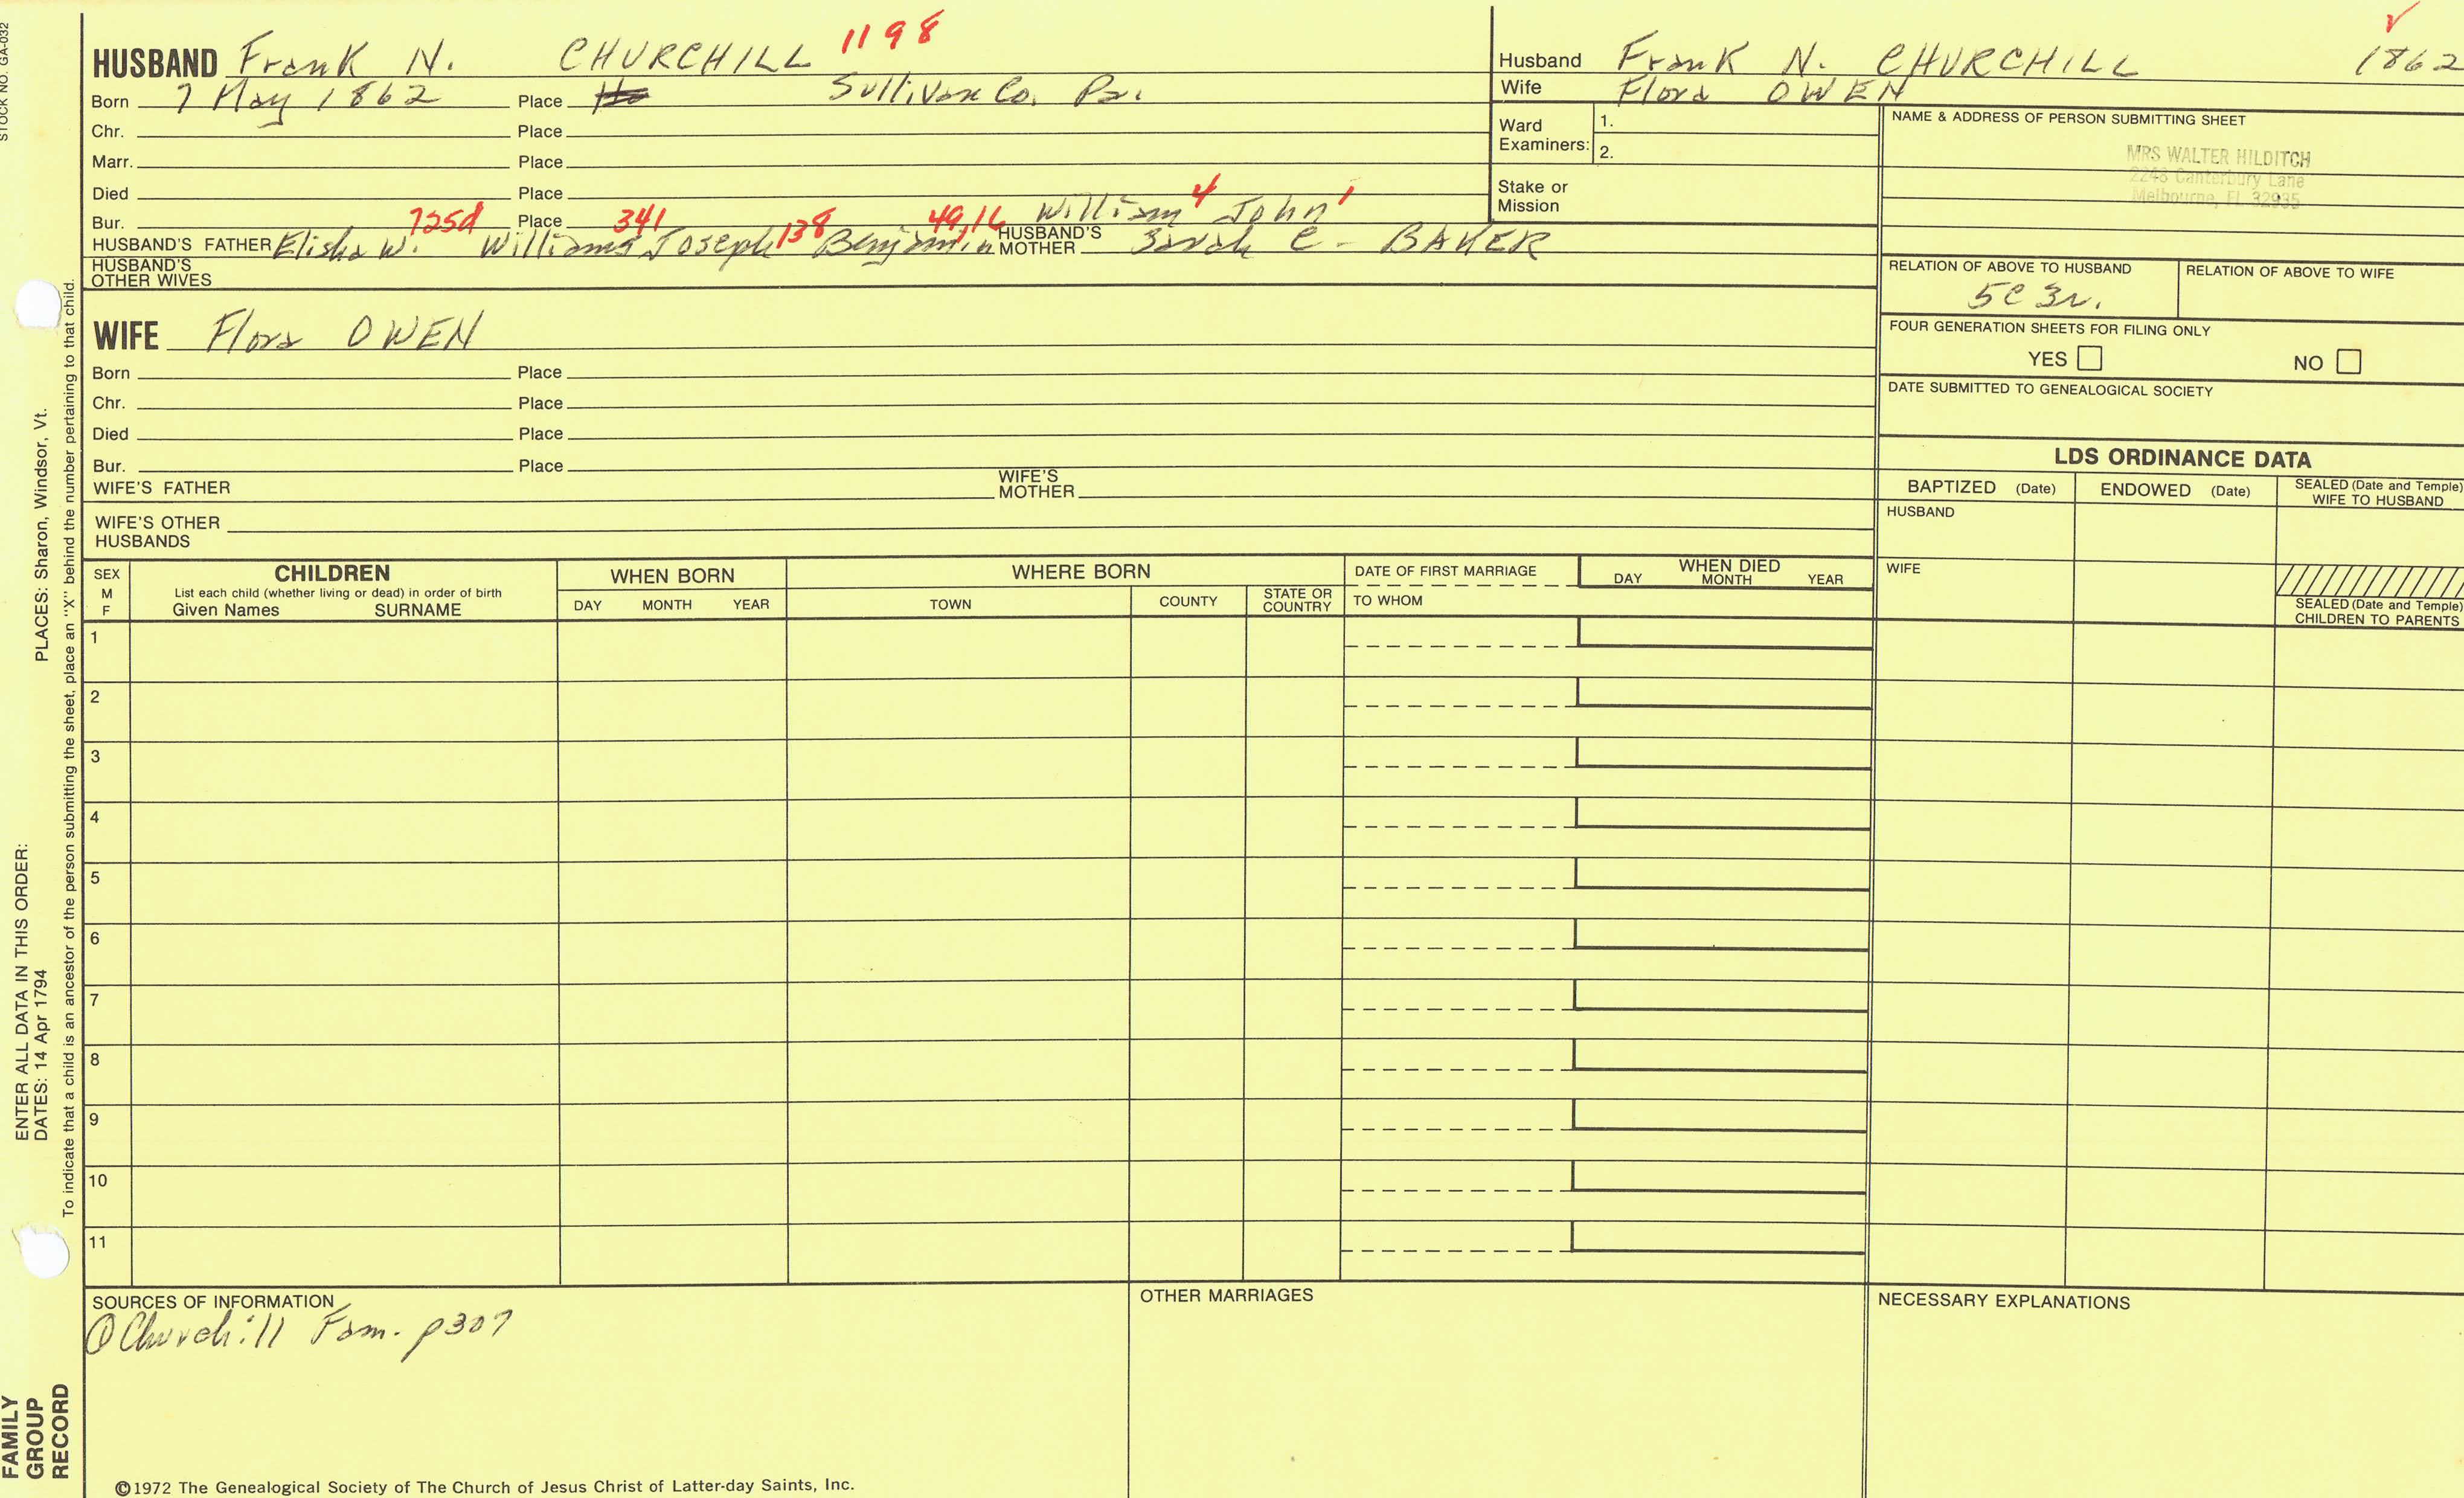 STOCK NO. GA-032
HUSBAND Frank N. CHURCHILL 1198
Born 7 May 1862 Place Sullivan Co. Pa.
Chr. Place
Marr. Place
Died Place
Bur. 725d Place 341 138 49,16 William 4 John 1
HUSBAND'S FATHER Elisha W. William Joseph Benjamin HUSBAND'S MOTHER Sarah C. BAKER
HUSBAND'S OTHER WIVES
WIFE Flora OWEN
Born Place
Chr. Place
Died Place
Bur. Place
WIFE'S FATHER WIFE'S MOTHER
WIFE'S OTHER HUSBANDS
Husband Frank N. CHURCHILL 1862
Wife Flora OWEN
Ward Examiners: 1.
2.
Stake or Mission
NAME & ADDRESS OF PERSON SUBMITTING SHEET
MRS WALTER HILDITCH
2246 Canterbury Lane
Melbourne, FL 32935
RELATION OF ABOVE TO HUSBAND RELATION OF ABOVE TO WIFE
5C 3r.
FOUR GENERATION SHEETS FOR FILING ONLY
YES NO
DATE SUBMITTED TO GENEALOGICAL SOCIETY
LDS ORDINANCE DATA
BAPTIZED (Date) ENDOWED (Date) SEALED (Date and Temple) WIFE TO HUSBAND
HUSBAND
WIFE
SEALED (Date and Temple) CHILDREN TO PARENTS
SEX M F
CHILDREN
List each child (whether living or dead) in order of birth
Given Names SURNAME
WHEN BORN
DAY MONTH YEAR
WHERE BORN
TOWN COUNTY STATE OR COUNTRY
DATE OF FIRST MARRIAGE
TO WHOM
WHEN DIED
DAY MONTH YEAR
1
2
3
4
5
6
7
8
9
10
11
SOURCES OF INFORMATION
① Churchill Fam. p307
OTHER MARRIAGES
NECESSARY EXPLANATIONS
©1972 The Genealogical Society of The Church of Jesus Christ of Latter-day Saints, Inc.
FAMILY GROUP RECORD
ENTER ALL DATA IN THIS ORDER:
DATES: 14 Apr 1794 PLACES: Sharon, Windsor, Vt.
To indicate that a child is an ancestor of the person submitting the sheet, place an "X" behind the number pertaining to that child.